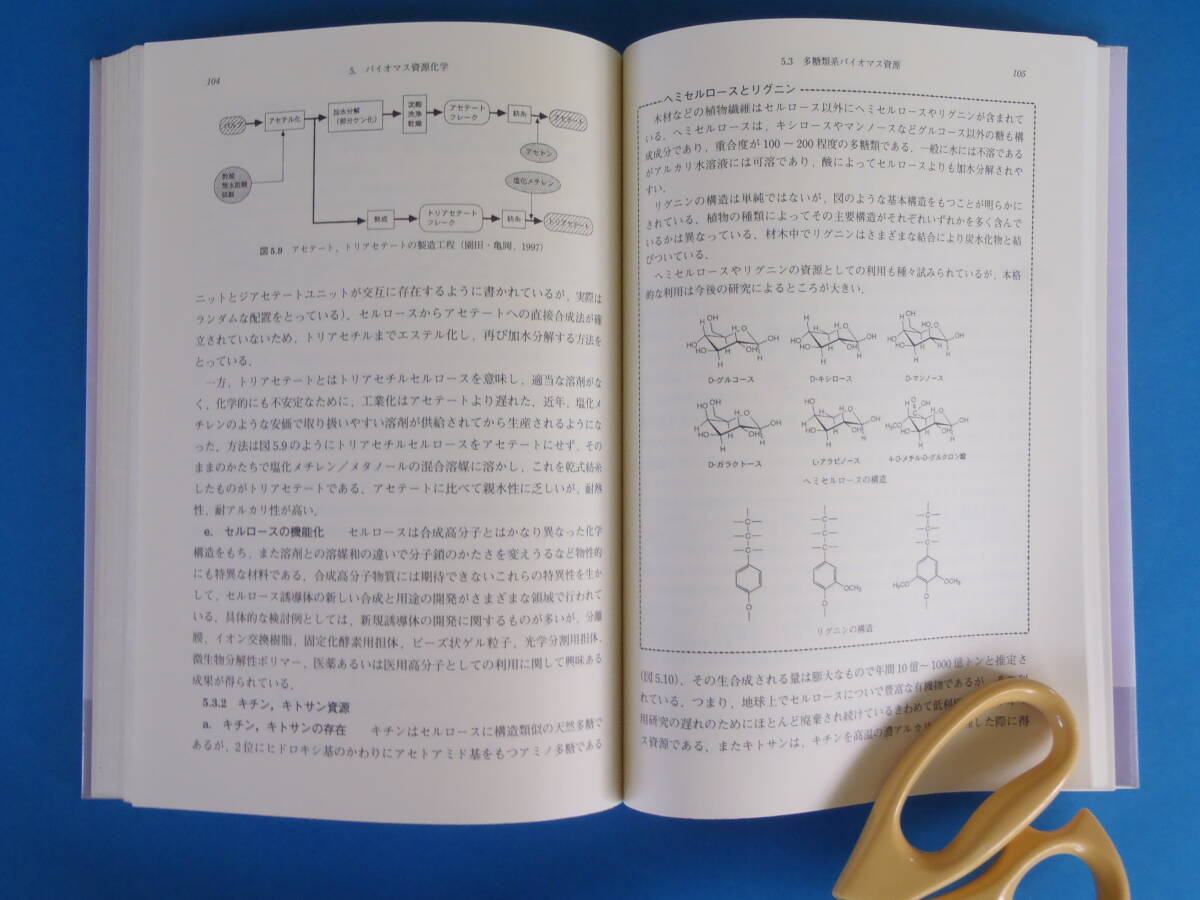 104
5. バイオマス資源化学
パルプ
アセチル化
加水分解
(部分ケン化)
沈殿
洗浄
乾燥
アセテート
フレーク
紡糸
アセテート
アセトン
酢酸
無水酢酸
硫酸
塩化メチレン
熟成
トリアセテート
フレーク
紡糸
トリアセテート
図5.9 アセテート,トリアセテートの製造工程(園田・亀岡,1997)
ニットとジアセテートユニットが交互に存在するように書かれているが,実際は
ランダムな配置をとっている).セルロースからアセテートへの直接合成法が確
立されていないため,トリアセチルまでエステル化し,再び加水分解する方法を
とっている.
一方,トリアセテートとはトリアセチルセルロースを意味し,適当な溶剤がな
く,化学的にも不安定なために,工業化はアセテートより遅れた.近年,塩化メ
チレンのような安価で取り扱いやすい溶剤が供給されてから生産されるようにな
った.方法は図5.9のようにトリアセチルセルロースをアセテートにせず,その
ままのかたちで塩化メチレン/メタノールの混合溶媒に溶かし,これを乾式紡糸
したものがトリアセテートである.アセテートに比べて親水性に乏しいが,耐熱
性,耐アルカリ性が高い.
e. セルロースの機能化 セルロースは合成高分子とはかなり異なった化学
構造をもち,また溶剤との溶媒和の違いで分子鎖のかたさを変えうるなど物性的
にも特異な材料である.合成高分子物質には期待できないこれらの特異性を生か
して,セルロース誘導体の新しい合成と用途の開発がさまざまな領域で行われて
いる.具体的な検討例としては,新規誘導体の開発に関するものが多いが,分離
膜,イオン交換樹脂,固定化酵素用担体,ビーズ状ゲル粒子,光学分割用担体,
微生物分解性ポリマー,医薬あるいは医用高分子としての利用に関して興味ある
成果が得られている.
5.3.2 キチン,キトサン資源
a. キチン,キトサンの存在 キチンはセルロースに構造類似の天然多糖で
あるが,2位にヒドロキシ基のかわりにアセトアミド基をもつアミノ多糖である
5.3 多糖類系バイオマス資源
105
ヘミセルロースとリグニン
木材などの植物繊維はセルロース以外にヘミセルロースやリグニンが含まれて
いる.ヘミセルロースは,キシロースやマンノースなどグルコース以外の糖も構
成成分であり,重合度が100~200程度の多糖類である.一般に水には不溶である
がアルカリ水溶液には可溶であり,酸によってセルロースよりも加水分解されや
すい.
リグニンの構造は単純ではないが,図のような基本構造をもつことが明らかに
されている.植物の種類によってその主要構造がそれぞれいずれかを多く含んで
いるかは異なっている.材木中でリグニンはさまざまな結合により炭水化物と結
びついている.
ヘミセルロースやリグニンの資源としての利用も種々試みられているが,本格
的な利用は今後の研究によるところが大きい.
D-グルコース
D-キシロース
D-マンノース
D-ガラクトース
L-アラビノース
4-O-メチル-D-グルクロン酸
ヘミセルロースの構造
OCH₃
H₃CO
OCH₃
リグニンの構造
(図5.10).その生合成される量は膨大なもので年間10億~1000億トンと推定さ
れている.つまり,地球上でセルロースについで豊富な有機物であるが,
用研究の遅れのためにほとんど廃棄され続けているきわめて低利
ス資源である.またキトサンは,キチンを高温の濃アルカ した際に得